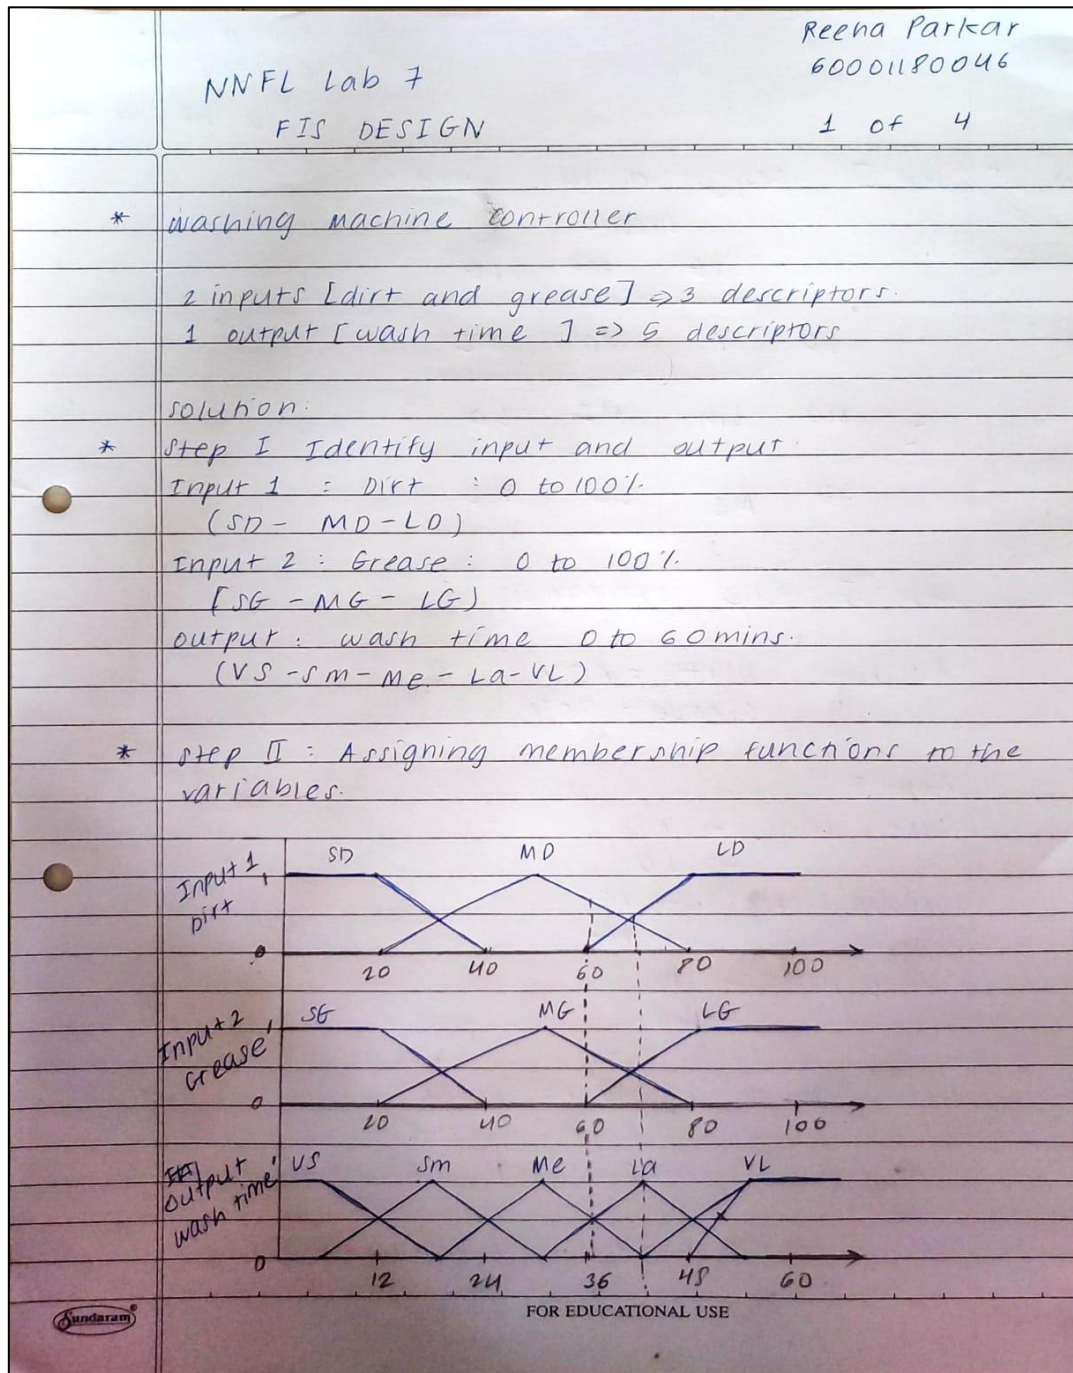 Reena Parkar
60001180046
NNFL Lab 7
FIS DESIGN
1 of 4
* Washing machine controller
2 inputs [dirt and grease] => 3 descriptors.
1 output [wash time ] => 5 descriptors
solution:
* Step I Identify input and output
Input 1 : Dirt : 0 to 100%.
(SD - MD - LD)
Input 2 : Grease : 0 to 100%.
[SG - MG - LG)
output : wash time 0 to 60 mins.
(VS - Sm - Me - La - VL)
* Step II : Assigning membership functions to the
variables.
SD MD LD
Input 1
Dirt
1
0
20 40 60 80 100
SG MG LG
Input 2
Grease
1
0
20 40 60 80 100
VS Sm Me La VL
Output
wash time
1
0
12 24 36 48 60
Sundaram®
FOR EDUCATIONAL USE